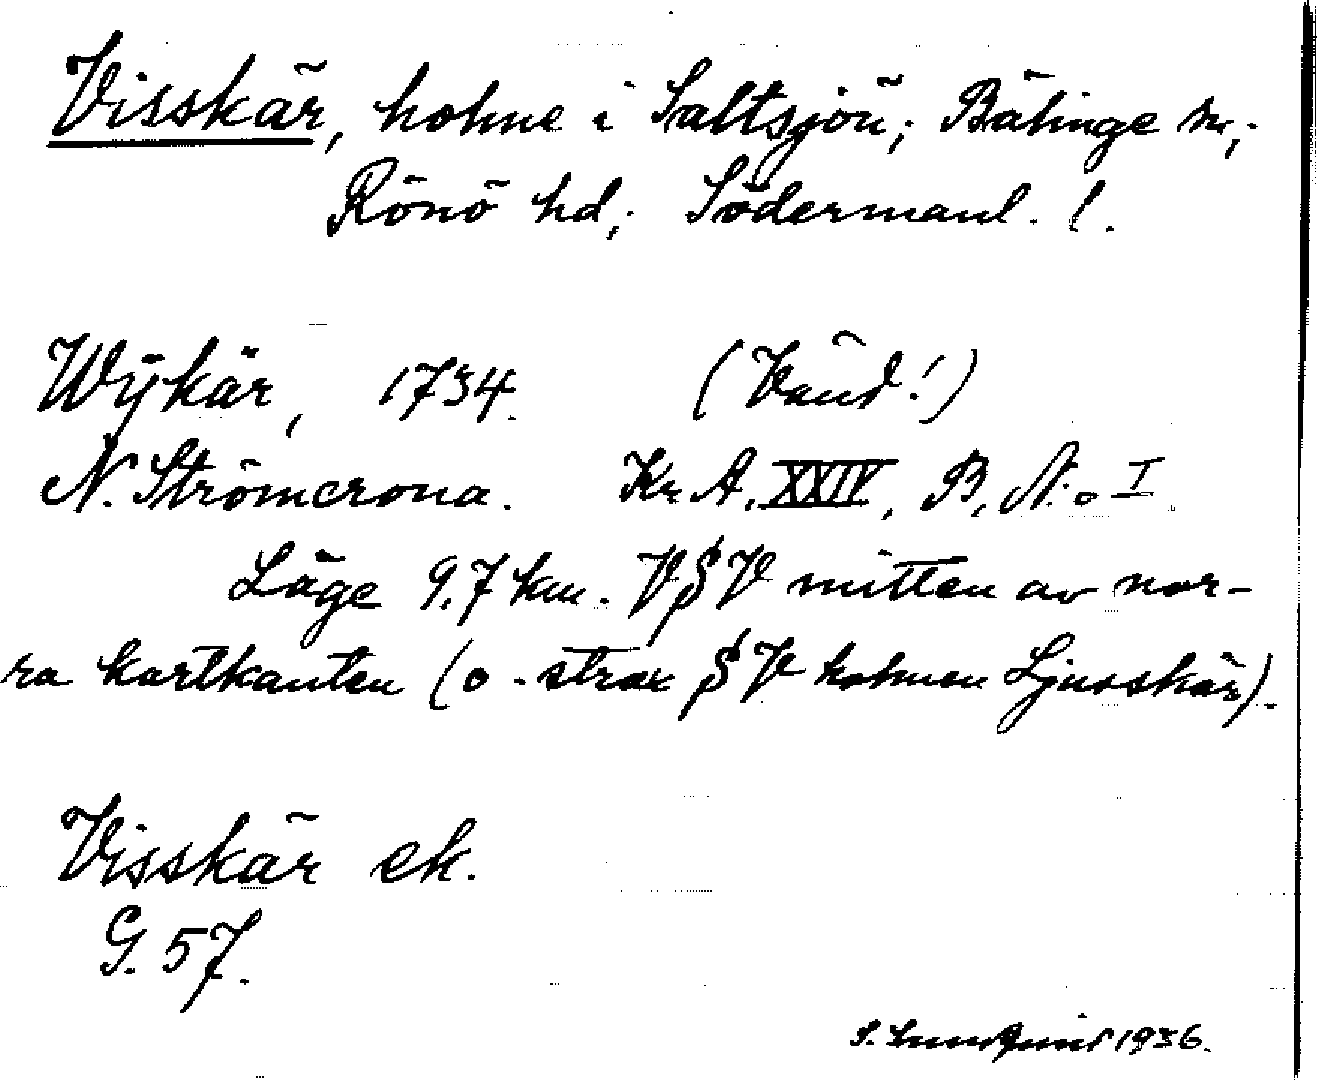 Visskär, holme i Saltsjön; Bälinge sn,;
Rönö hd,; Södermanl. l.
Wÿkär, 1734. (Vänd!)
N. Strömcrona. Kr. A. XXIV, B, N:o I
Läge 9,7 km. VSV mitten av nor-
ra kartkanten (o. strax SV holmen Ljusskär).
Visskär ek.
G. 57.
S. Lundquist 1936.